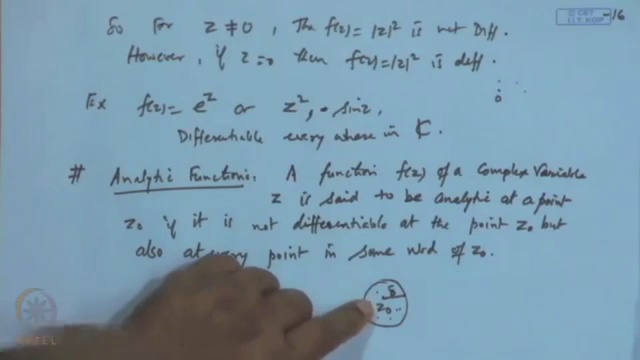 © CET
I.I.T. KGP
-16
So For z ≠ 0, The f(z) = |z|² is not Diff.
However, if z=0 then f(z) = |z|² is diff.
Ex f(z) = e^z or z², sin z,
Differentiable every where in ₵.
# Analytic Function: A function f(z) of a Complex Variable
z is said to be analytic at a point
z₀ if it is not differentiable at the point z₀ but
also at every point in some nbd of z₀.
δ
z₀